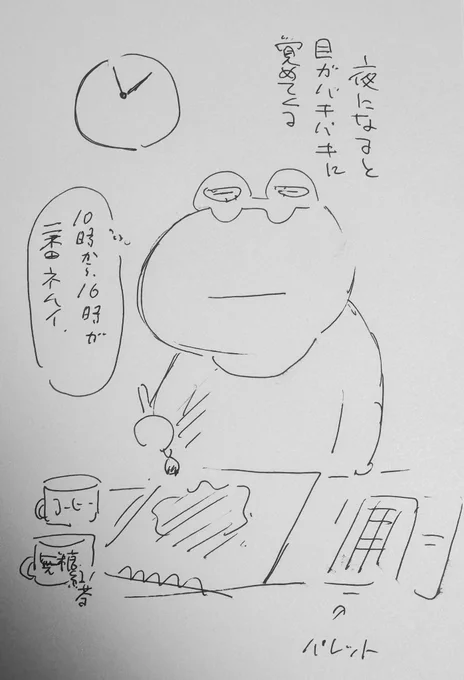 夜になると
目がバキバキに
覚めてくる
10時から16時が
一番ネムイ.
コーヒー
無糖紅茶
パレット